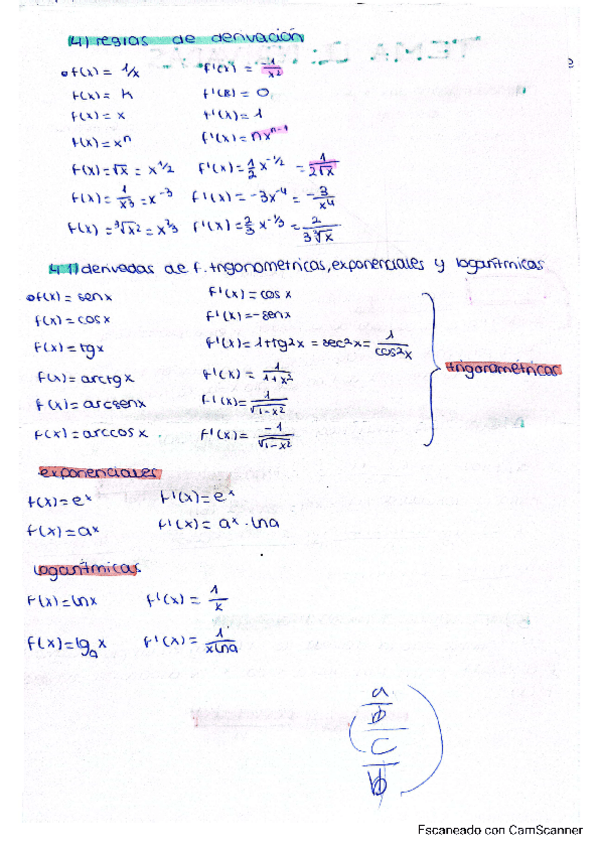 4) reglas de derivación
f(x) = 1/x f'(x) = -1/x²
f(x) = K f'(x) = 0
f(x) = x f'(x) = 1
f(x) = xⁿ f'(x) = nxⁿ⁻¹
f(x) = √x = x^1/2 f'(x) = 1/2 x^-1/2 = 1/2√x
f(x) = 1/x³ = x⁻³ f'(x) = -3x⁻⁴ = -3/x⁴
f(x) = ³√x² = x^2/3 f'(x) = 2/3 x^-1/3 = 2/3³√x
4.1) derivadas de f. trigonometricas, exponenciales y logarítmicas
f(x) = senx f'(x) = cos x
f(x) = cosx f'(x) = -senx
f(x) = tgx f'(x) = 1+tg²x = sec²x = 1/cos²x
trigonométricas
f(x) = arctgx f'(x) = 1/1+x²
f(x) = arcsenx f'(x) = 1/√1-x²
f(x) = arccosx f'(x) = -1/√1-x²
exponenciales
f(x) = eˣ f'(x) = eˣ
f(x) = aˣ f'(x) = aˣ · lna
logarítmicas
f(x) = lnx f'(x) = 1/x
f(x) = lgₐx f'(x) = 1/xlna
a
b
c
b
Escaneado con CamScanner